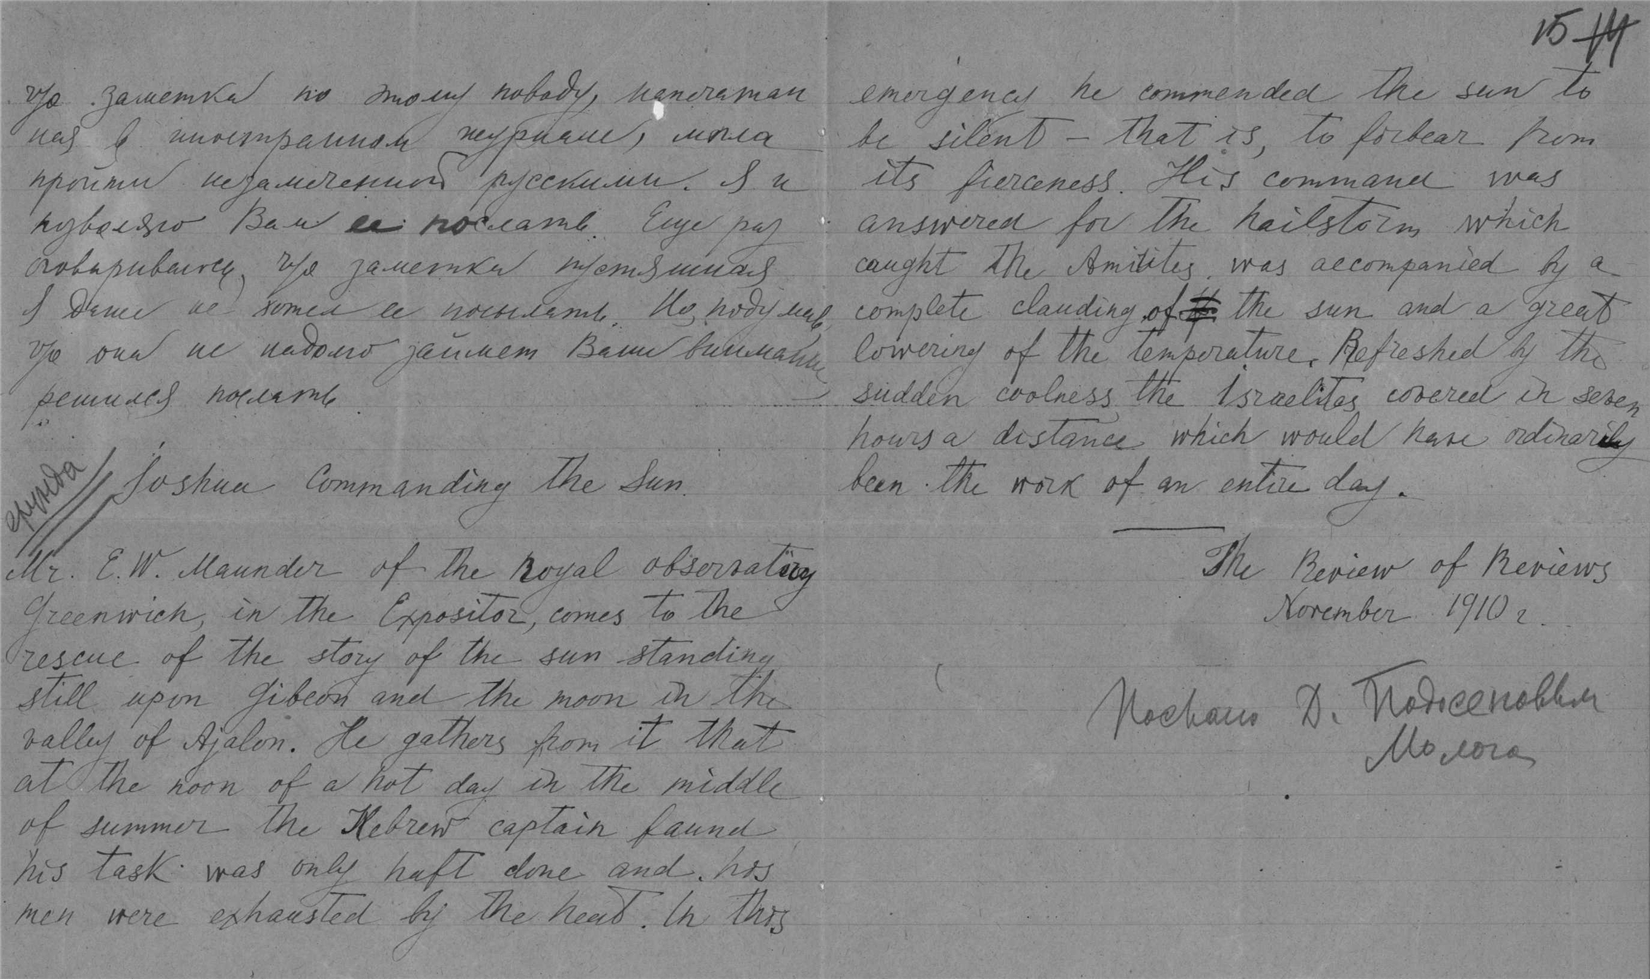 что заметка по этому поводу, напечатан
ная в иностранном журнале, могла
пройти незамеченной русскими. Я и
позволяю Вам ее послать. Еще раз
оговариваюсь, что заметка пустяшная
Я даже не хотел ее посылать. Но, подумав,
что она не надолго займет Ваше внимание
решился послать.
ерунда
Joshua Commanding the Sun.
Mr. E. W. Maunder of the Royal observatory
Greenwich, in the Expositor, comes to the
rescue of the story of the sun standing
still upon Gibeon and the moon in the
valley of Ajalon. He gathers from it that
at the noon of a hot day in the middle
of summer the Hebrew captain faund
his task was only haft done and his
men were exhausted by the heat. In this
15 14
emergency he commended the sun to
be silent – that is, to forbear from
its fierceness. His command was
answered for the hailstorm which
caught the Amitites was accompanied by a
complete clauding of the sun and a great
lowering of the temperature. Refreshed by the
sudden coolness the Israelites covered in seven
hours a distance which would have ordinarily
been the work of an entire day.
The Review of Reviews
November 1910 г.
Послано Д. Подосеновым
Молога